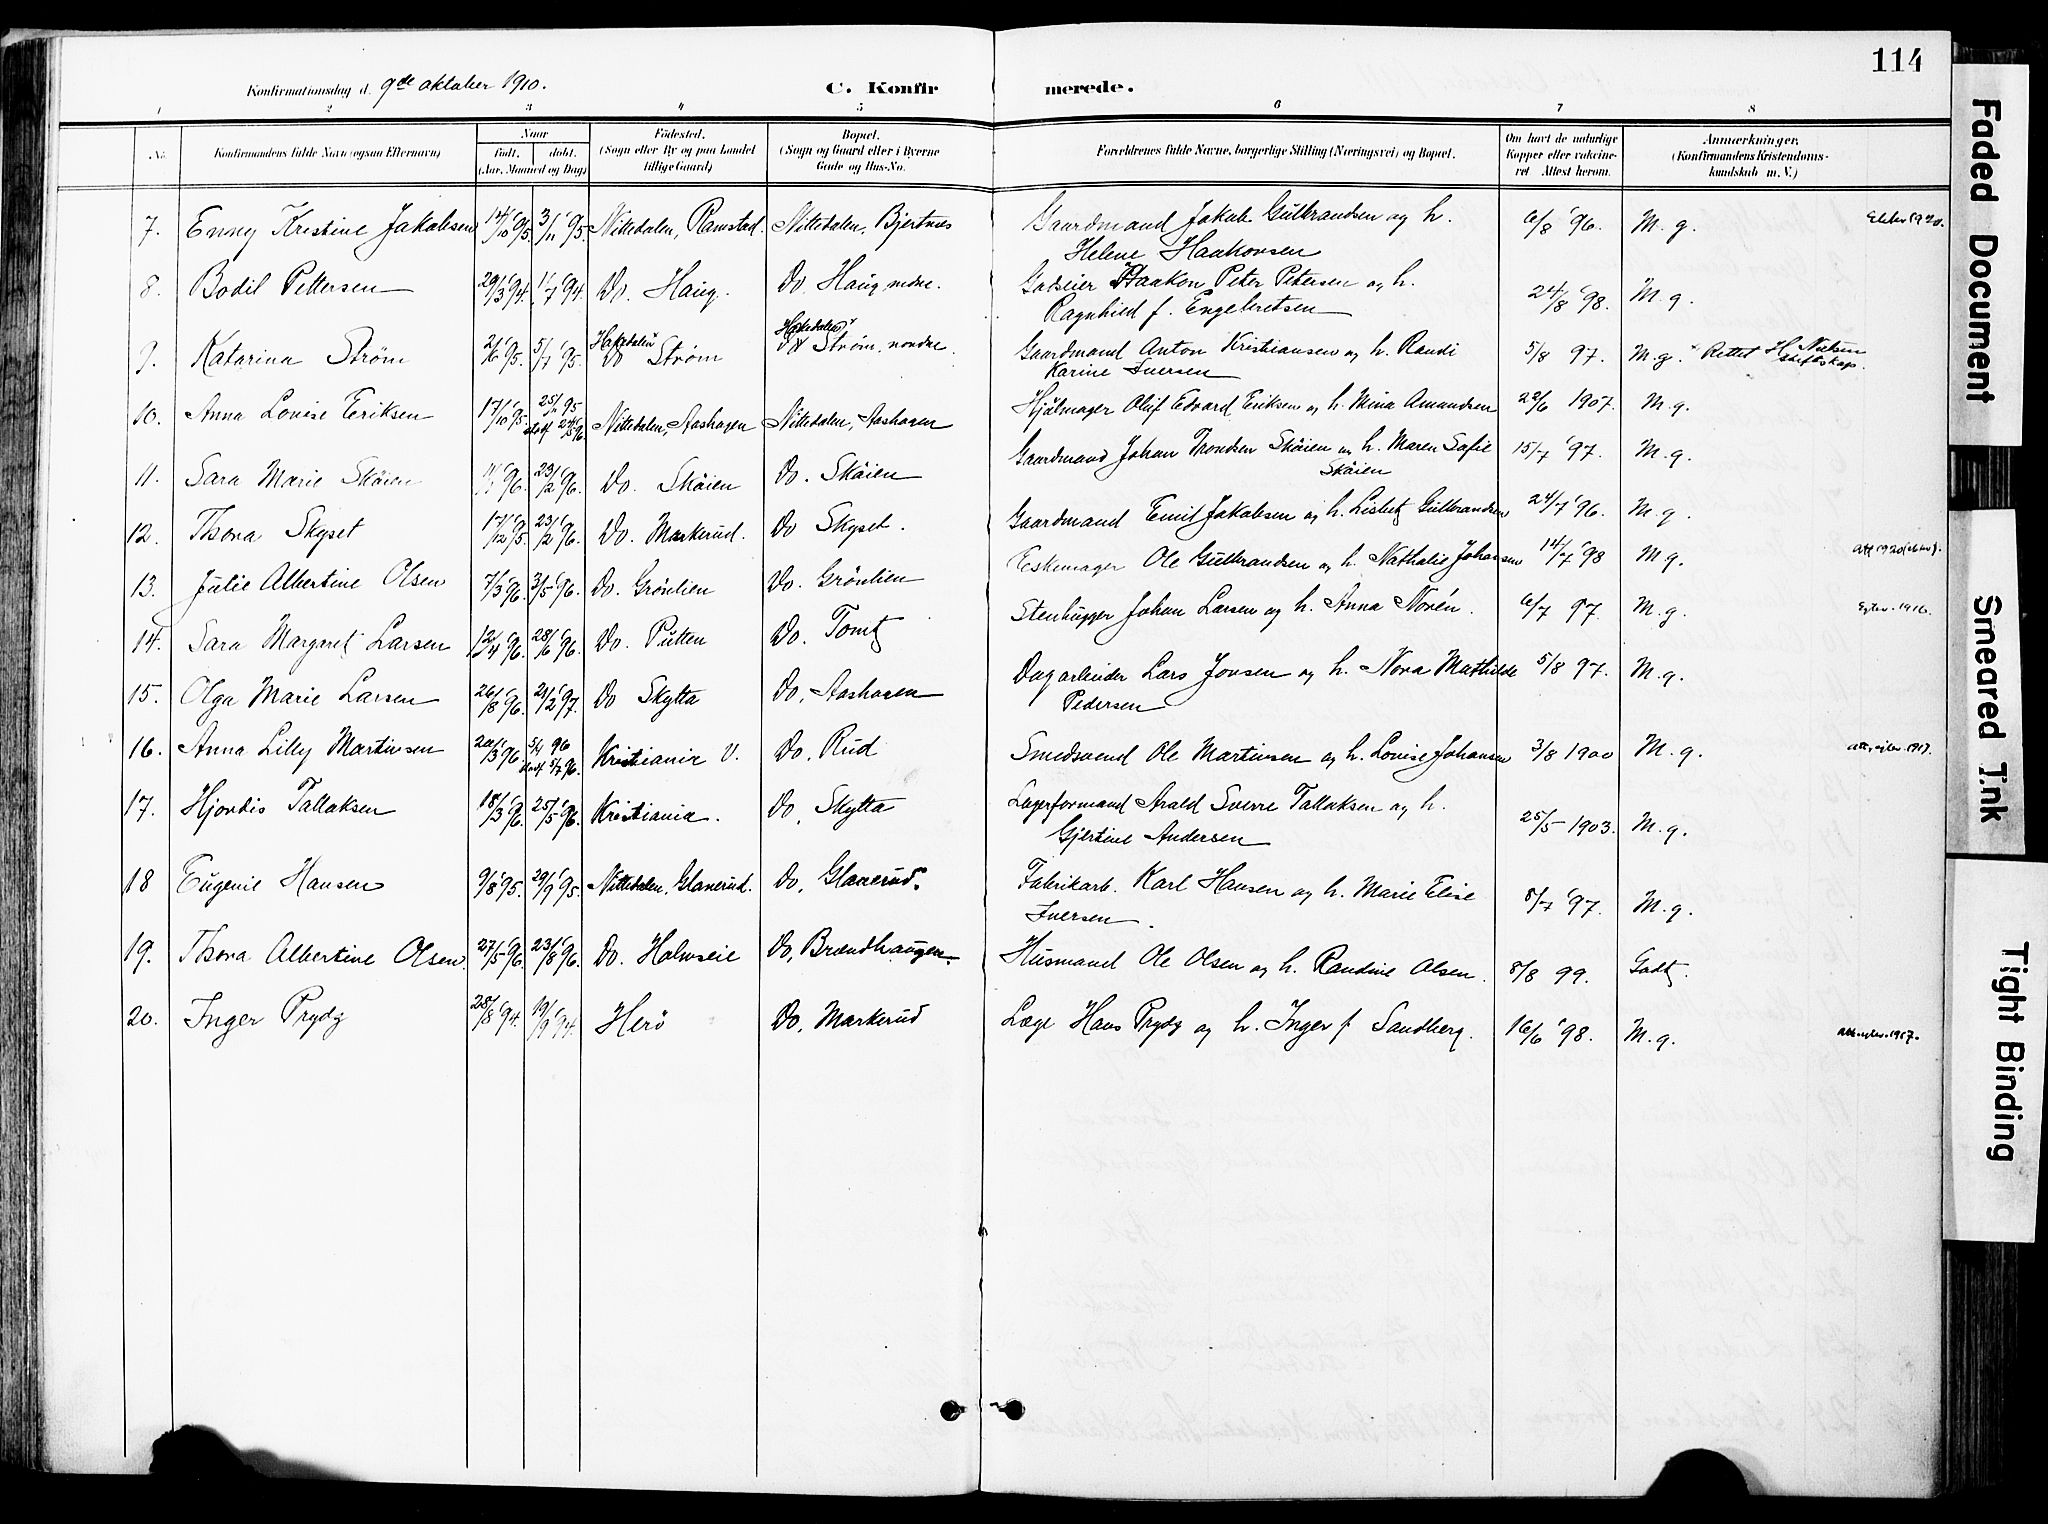 114
Konfirmationsdag d. 9de oktober 1910. C. Konfirmerede.
1 2 3 4 5 6 7 8
No. Konfirmandens fulde Navn (ogsaa Efternavn) Naar født, døbt. (Aar, Maaned og Dag) Fødested. (Sogn eller By og paa Landet tillige Gaard) Bopæl. (Sogn og Gaard eller i Byerne Gade og Hus-No. Forældrenes fulde Navne, borgerlige Stilling (Næringsvei) og Bopæl. Om havt de naturlige Kopper eller vakcineret Attest herom. Anmærkninger. (Konfirmandens Kristendomskundskab m. V.)
7. Enny Kristine Jakobsen 3/11 '95. Nittedalen, Ramstad. Nittedalen, Bjertnes Gaardmand Jakob Gulbrandsen og h. 6/8 '96. M. g.
Helene Haakonsen
8. Bodil Pettersen 29/3 '94. 1/7 '94. Do. Haug. Do. Haug nedre. Gadeier Haakon Peter Petersen og h. 24/8 '98. M. g.
Ragnhild f. Engebretsen
9. Katarina Strøm 2/6 '95. 5/7 '95. Hakedalen Strøm Hakedalen Strøm, nordre. Gaardmand Anton Kristiansen og h. Randi 5/8 97. M. g. Rettet H. Nielsen
Karine Iversen
10. Anna Lovise Eriksen 17/10 '95. Nittedalen, Aashagen Nittedalen, Aashagen Hjulmager Oluf Edvard Eriksen og h. Mina Amundsen 22/6 1907. M. g.
11. Sara Marie Skøien 23/2 '96. Do. Skøien Do. Skøien Gaardmand Johan Trondsen Skøien og h. Maren Sofie 15/7 '97. M. g.
Skøien
12. Thora Skyset 17/12 '95. 23/2 '96. Do. Markerud. Do Skyset. Gaardmand Emil Jakobsen og h. Lisbet Gulbrandsen 24/7 '96. M. g.
13. Julie Albertine Olsen 7/3 '96. 3/5 '96. Do. Grønlien Do. Grønlien Eskemager Ole Gulbrandsen og h. Nathalie Johansen 14/7 '98 M. g.
14. Sara Margaret Larsen 12/4 '96. 28/6 '96. Do. Putten Do. Tomt Stenhugger Johan Larsen og h. Anna Norén. 6/7 97. M. g.
15. Olga Marie Larsen 26/8 '96. 21/2 '97. Do Skytta Do, Aashagen Dagarbeider Lars Jonsen og h. Nora Mathilde 5/8 97. M. g.
Pedersen
16. Anna Lilly Martinsen 5/4 96 Kristiania V. Do. Rud Smedsvend Ole Martinsen og h. Lovise Johansen 3/8 1900 M. g.
17. Hjordis Tallaksen 18/3 '96. 25/5 '96. Kristiania. Do, Skytta Lagerformand Arald Sverre Tallaksen og h. 25/5 1903. M. g.
Gjertine Andersen
18 Eugenie Hansen 9/8 '95. 29/9 '95. Nittedalen, Glanerud. Do, Glanerud. Fabrikarb. Karl Hansen og h. Marie Elise 8/7 '97. M. g.
Iversen.
19. Thora Albertine Olsen 27/5 '96. 23/8 '96. Do. Holmseie Do, Brændhaugen. Husmand Ole Olsen og h. Randine Olsen. 8/8 99. Godt.
20. Inger Prydz 28/8 '94. 19/9 '94. Herø Do, Markerud Læge Hans Prydz og h. Inger f. Sandberg. 16/6 '98. M. g.
Faded Document
Smeared Ink
Tight Binding